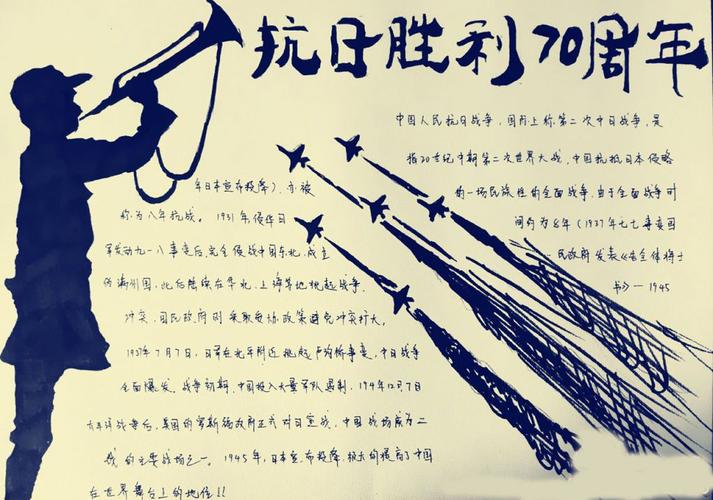 抗日胜利70周年
中国人民抗日战争，国际上称第二次中日战争，是
指20世纪中期第二次世界大战，中国抵抗日本侵略
的一场民族性的全面战争，由于全面战争时
间约为8年（1937年七七事变国
民政府发表《告全体将士
书》—1945
年日本宣布投降）亦被
称为八年抗战。1931年，侵华日
军发动九一八事变后，完全侵战中国东北，成立
伪满州国，此后陆续在华北、上海等地挑起战争
冲突，国民政府则采取妥协政策避免冲突扩大。
1937年7月7日，日军在北平附近挑起卢沟桥事变，中日战争
全面爆发。战争初期，中国投入大量军队遏制，194年12月7日
太平洋战争后，美国的罗斯福政府正式对日宣战，中国战场成为二
战的主要战场之一。1945年，日本宣布投降，极大的提高了中国
在世界舞台上的地位!!